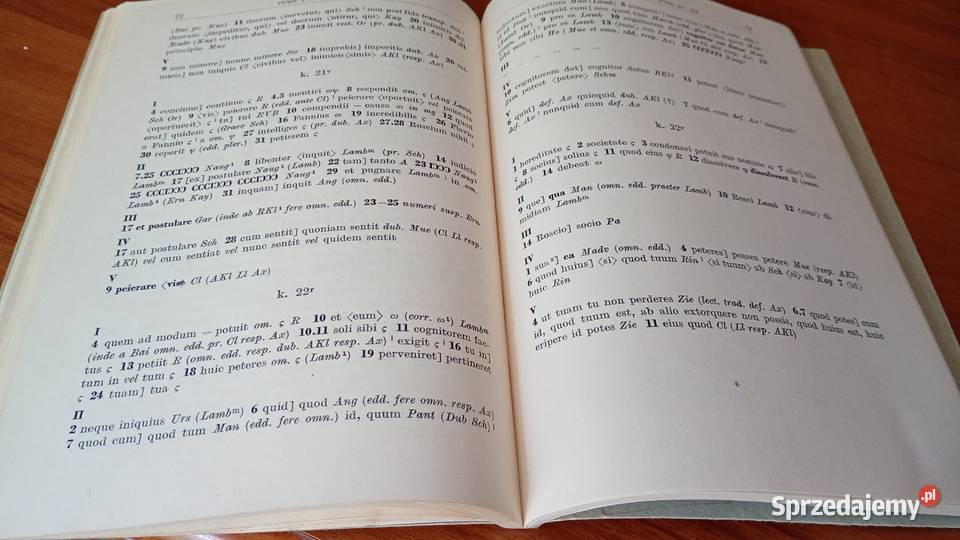 72
⟨Bai pr. Mue⟩ 11 deorum ⟨movetur, qui⟩ Sch ꞌ non post fide transp.
deorum ⟨impeditur, qui⟩ vel deorum ⟨utitur, qui⟩ Kay 20 inimicis
Madv (Kay) civibus dub. Mue 23 iniecit res. Or (pr. dub. AKl Ax) 30.31
principio Mue
V
9 non minore] nonne minore Str 18 improbis] imperitis dub. Ax 26 ini-
micis] non iniquis Cl ⟨civibus vel⟩ inimicis⟨simis⟩ AKl (resp. Ax)
k. 21ᵛ
I
4 concinne] continue ς R 4.5 mentiri ωφ 8 respondit om. ς (Ang Lamb
Sch Or) 9 ⟨vis⟩ peierare R (edd. ante Cl) ꞌ peierare ⟨oportuit⟩ vel peierare
⟨oportuerit⟩ ς ꞌ tu] tui RYB 10 compendii — causa ω in mg 12 quod
erat] quidem ς (Graev Sch) 16 Fannius ω 19 incredibilis ς 26 Flavio
a Fannio ς ꞌ a om. φ 27 intelliges ς (pr. dub. Ax) 27.28 Roscium nihil ς
30 reperit ψ (edd. pler.) 31 petissem ς
II
7.25 CCCIƆƆƆ Naug¹ 8 libenter ⟨inquit⟩ Lambᵐ (pr. Sch) 14 iudicio
Lambᵐ 17 [ex] postulare Naug¹ (Lamb) 22 tam] tanto A 23 IƆƆƆ Naug¹
25 CCCIƆƆƆ CCCIƆƆƆ CCCIƆƆƆ Naug¹ 29 et pugnare Lambᵐ ꞌ in om.
Lamb¹ (Ern Kay) 31 inquam] inquit Ang (omn. edd.)
III
17 et postulare Gar (inde ab RKl¹ fere omn. edd.) 23—25 numeri susp. Ern
IV
17 aut postulare Sch 28 cum sentit] quoniam sentit dub. Mue (Cl Ll resp.
AKl) vel cum sentiat vel nunc sentit vel quidem sentit
V
9 peierare ⟨vis⟩ Cl (AKl Ll Ax)
k. 22ʳ
I
4 quem ad modum — potuit om. ς R 10 et ⟨eum⟩ ω (corr. ω¹) Lambm
(inde a Bai omn. edd. pr. Cl resp. Ax) 10.11 soli sibi ς 11 cognitorem fac-
tus ς 13 petiit R (omn. edd. resp. dub. AKl resp. Ax) ꞌ exigit ς ꞌ 16 tu in]
tum in vel tum ς 18 huic peteres om. ς (Lamb¹) 19 perveniret] pertineret
ς 24 tuam] tua ς
II
2 neque iniquius Urs (Lambᵐ) 6 quid] quod Ang (edd. fere omn. resp. Ax)
7 quod cum] quod tum Man (edd. fere omn.) id, quum Pant (Dub Sch) ꞌ
III
— — — —
IV
10 cognitorem dat] cognitor datus RKl¹ 11 potest
Rin potest ⟨petere⟩ Schm
V
6 quid] def. Ax quicquid dub. AKl (?) 7 quod cum]
def. Ax ꞌ numquid cum def. Ax
k. 22ᵛ
I
1 hereditate ς 2 societate ς 3 condonari potuit suo nomine ω 7 alio] illo
ς 8 socius] solius ς 11 quod eius φ R 12 dissolvere ψ dissolveret R (omn.
edd.) 14 debent ω
II
9 que] qua Man (omn. edd. praeter Lamb) 10 Rosci Lamb 12 ⟨sua⟩ di-
midiam Lambm
III
14 Roscio] socio Pa
IV
1 sua ᵃ] ea Madv (omn. edd.) 4 peteres] posses petere Mue (resp. AKl)
6 quod huius] ⟨si⟩ quod tuum Rin ꞌ ⟨si tuum⟩ ab Sch ⟨si⟩ ab Kay 7 ⟨id⟩
huic Rin
V
4 ut tuam tu non perderes Zie (lect. trad. def. Ax) 6.7 quod potes] cum
id, quod tuum est, ab alio extorquere non possis, quod huius est, huic
eripere id potes Zie 11 eius quod Cl (Ll resp. AKl)
Sprzedajemy.pl